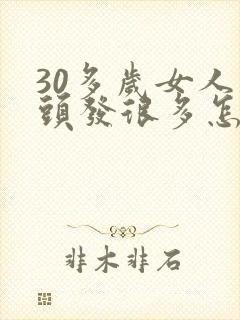 30多歲女人
頭發很多怎
非木非石